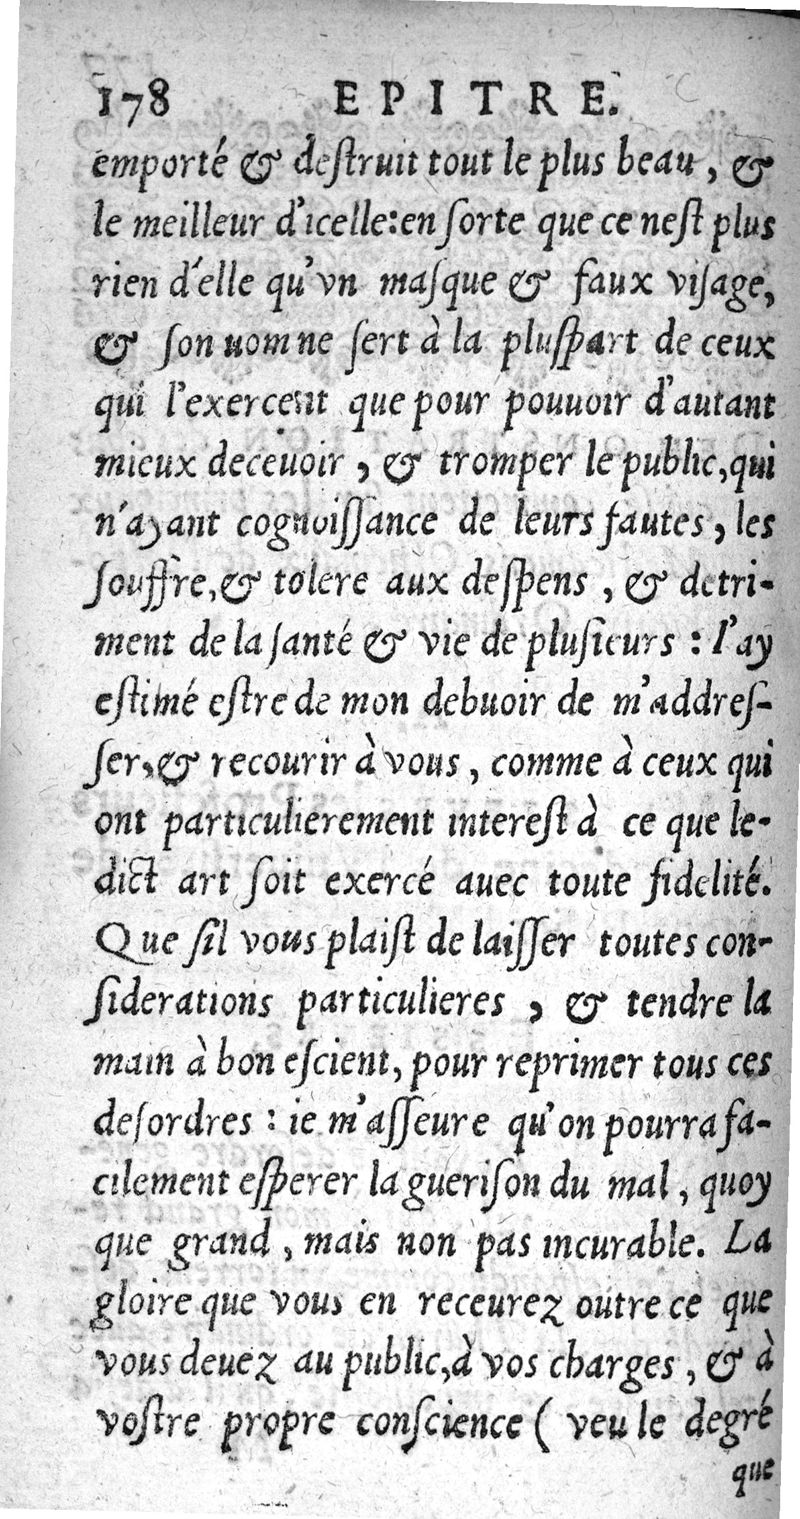 178 EPITRE.
emporté & destruit tout le plus beau, &
le meilleur d'icelle: en sorte que ce nest plus
rien d'elle qu'vn masque & faux visage,
& son nom ne sert à la pluspart de ceux
qui l'exercent que pour pouuoir d'autant
mieux deceuoir, & tromper le public, qui
n'ayant cognoissance de leurs fautes, les
souffre, & tolere aux despens, & detri-
ment de la santé & vie de plusieurs: I'ay
estimé estre de mon debuoir de m'addres-
ser, & recourir à vous, comme à ceux qui
ont particulierement interest à ce que le-
dict art soit exercé auec toute fidelité.
Que sil vous plaist de laisser toutes con-
siderations particulieres, & tendre la
main à bon escient, pour reprimer tous ces
desordres: ie m'asseure qu'on pourra fa-
cilement esperer la guerison du mal, quoy
que grand, mais non pas incurable. La
gloire que vous en receurez outre ce que
vous deuez au public, à vos charges, & à
vostre propre conscience ( veu le degré
que